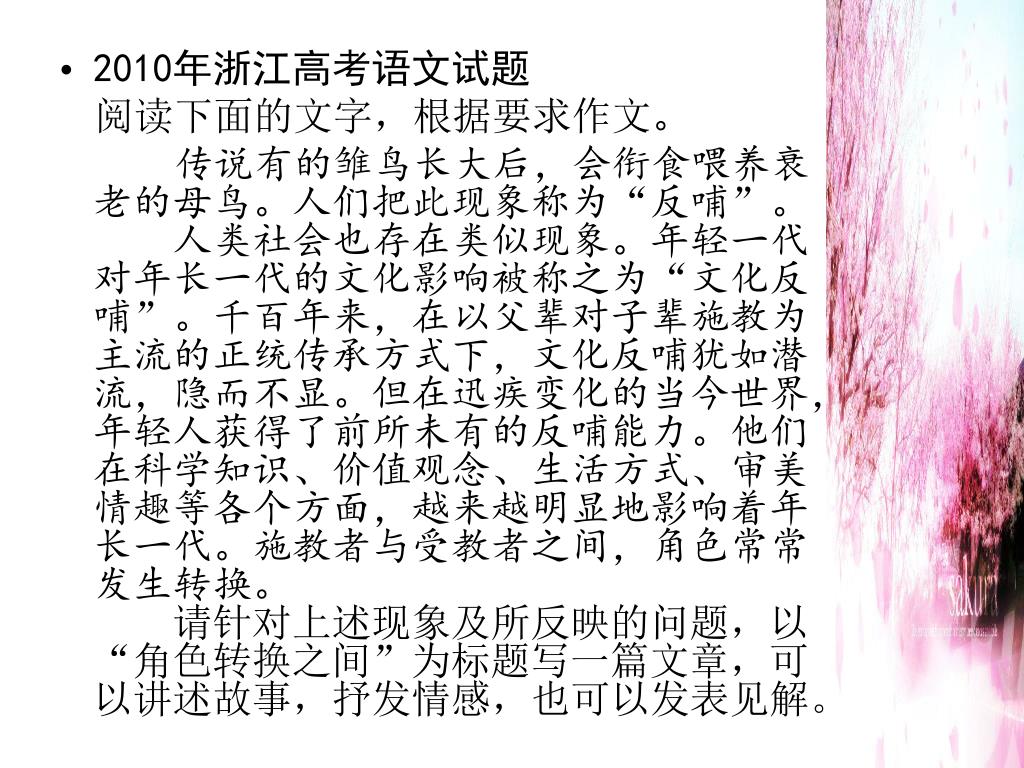 • 2010年浙江高考语文试题
阅读下面的文字，根据要求作文。
传说有的雏鸟长大后，会衔食喂养衰
老的母鸟。人们把此现象称为“反哺”。
人类社会也存在类似现象。年轻一代
对年长一代的文化影响被称之为“文化反
哺”。千百年来，在以父辈对子辈施教为
主流的正统传承方式下，文化反哺犹如潜
流，隐而不显。但在迅疾变化的当今世界，
年轻人获得了前所未有的反哺能力。他们
在科学知识、价值观念、生活方式、审美
情趣等各个方面，越来越明显地影响着年
长一代。施教者与受教者之间，角色常常
发生转换。
请针对上述现象及所反映的问题，以
“角色转换之间”为标题写一篇文章，可
以讲述故事，抒发情感，也可以发表见解。
sakura